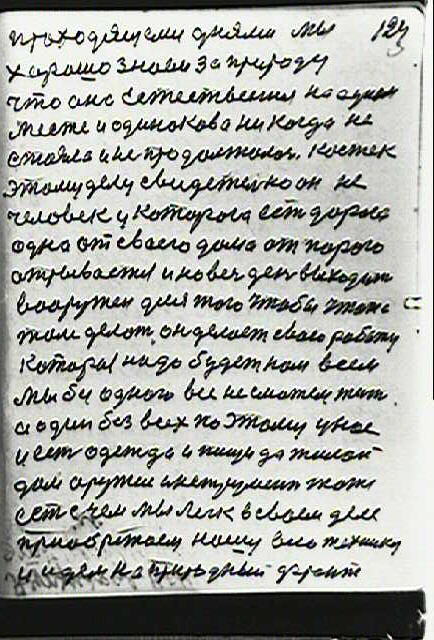 проходящеми днями мы 124
хорашо знаем за природу
что она естественная на одном
месте и одинакова никогда не
стояла и не продолжалась. костек
этому делу свидетел но он не
человек у которога ест дорога
одна от своего дома от порога
открывается и на весь день выходит
вооружен для того чтобы что то
там делат, он делает свою работу
которая надо будет нам всем
мы без одного все не сможем жит
а один без всех поэтому у нас
и ест одежда и пища да жилой
дом оружие и инструмент тоже
ест с чем мы легк в своем деле
приобретаем нашу всю технику
и идем на природный фронт